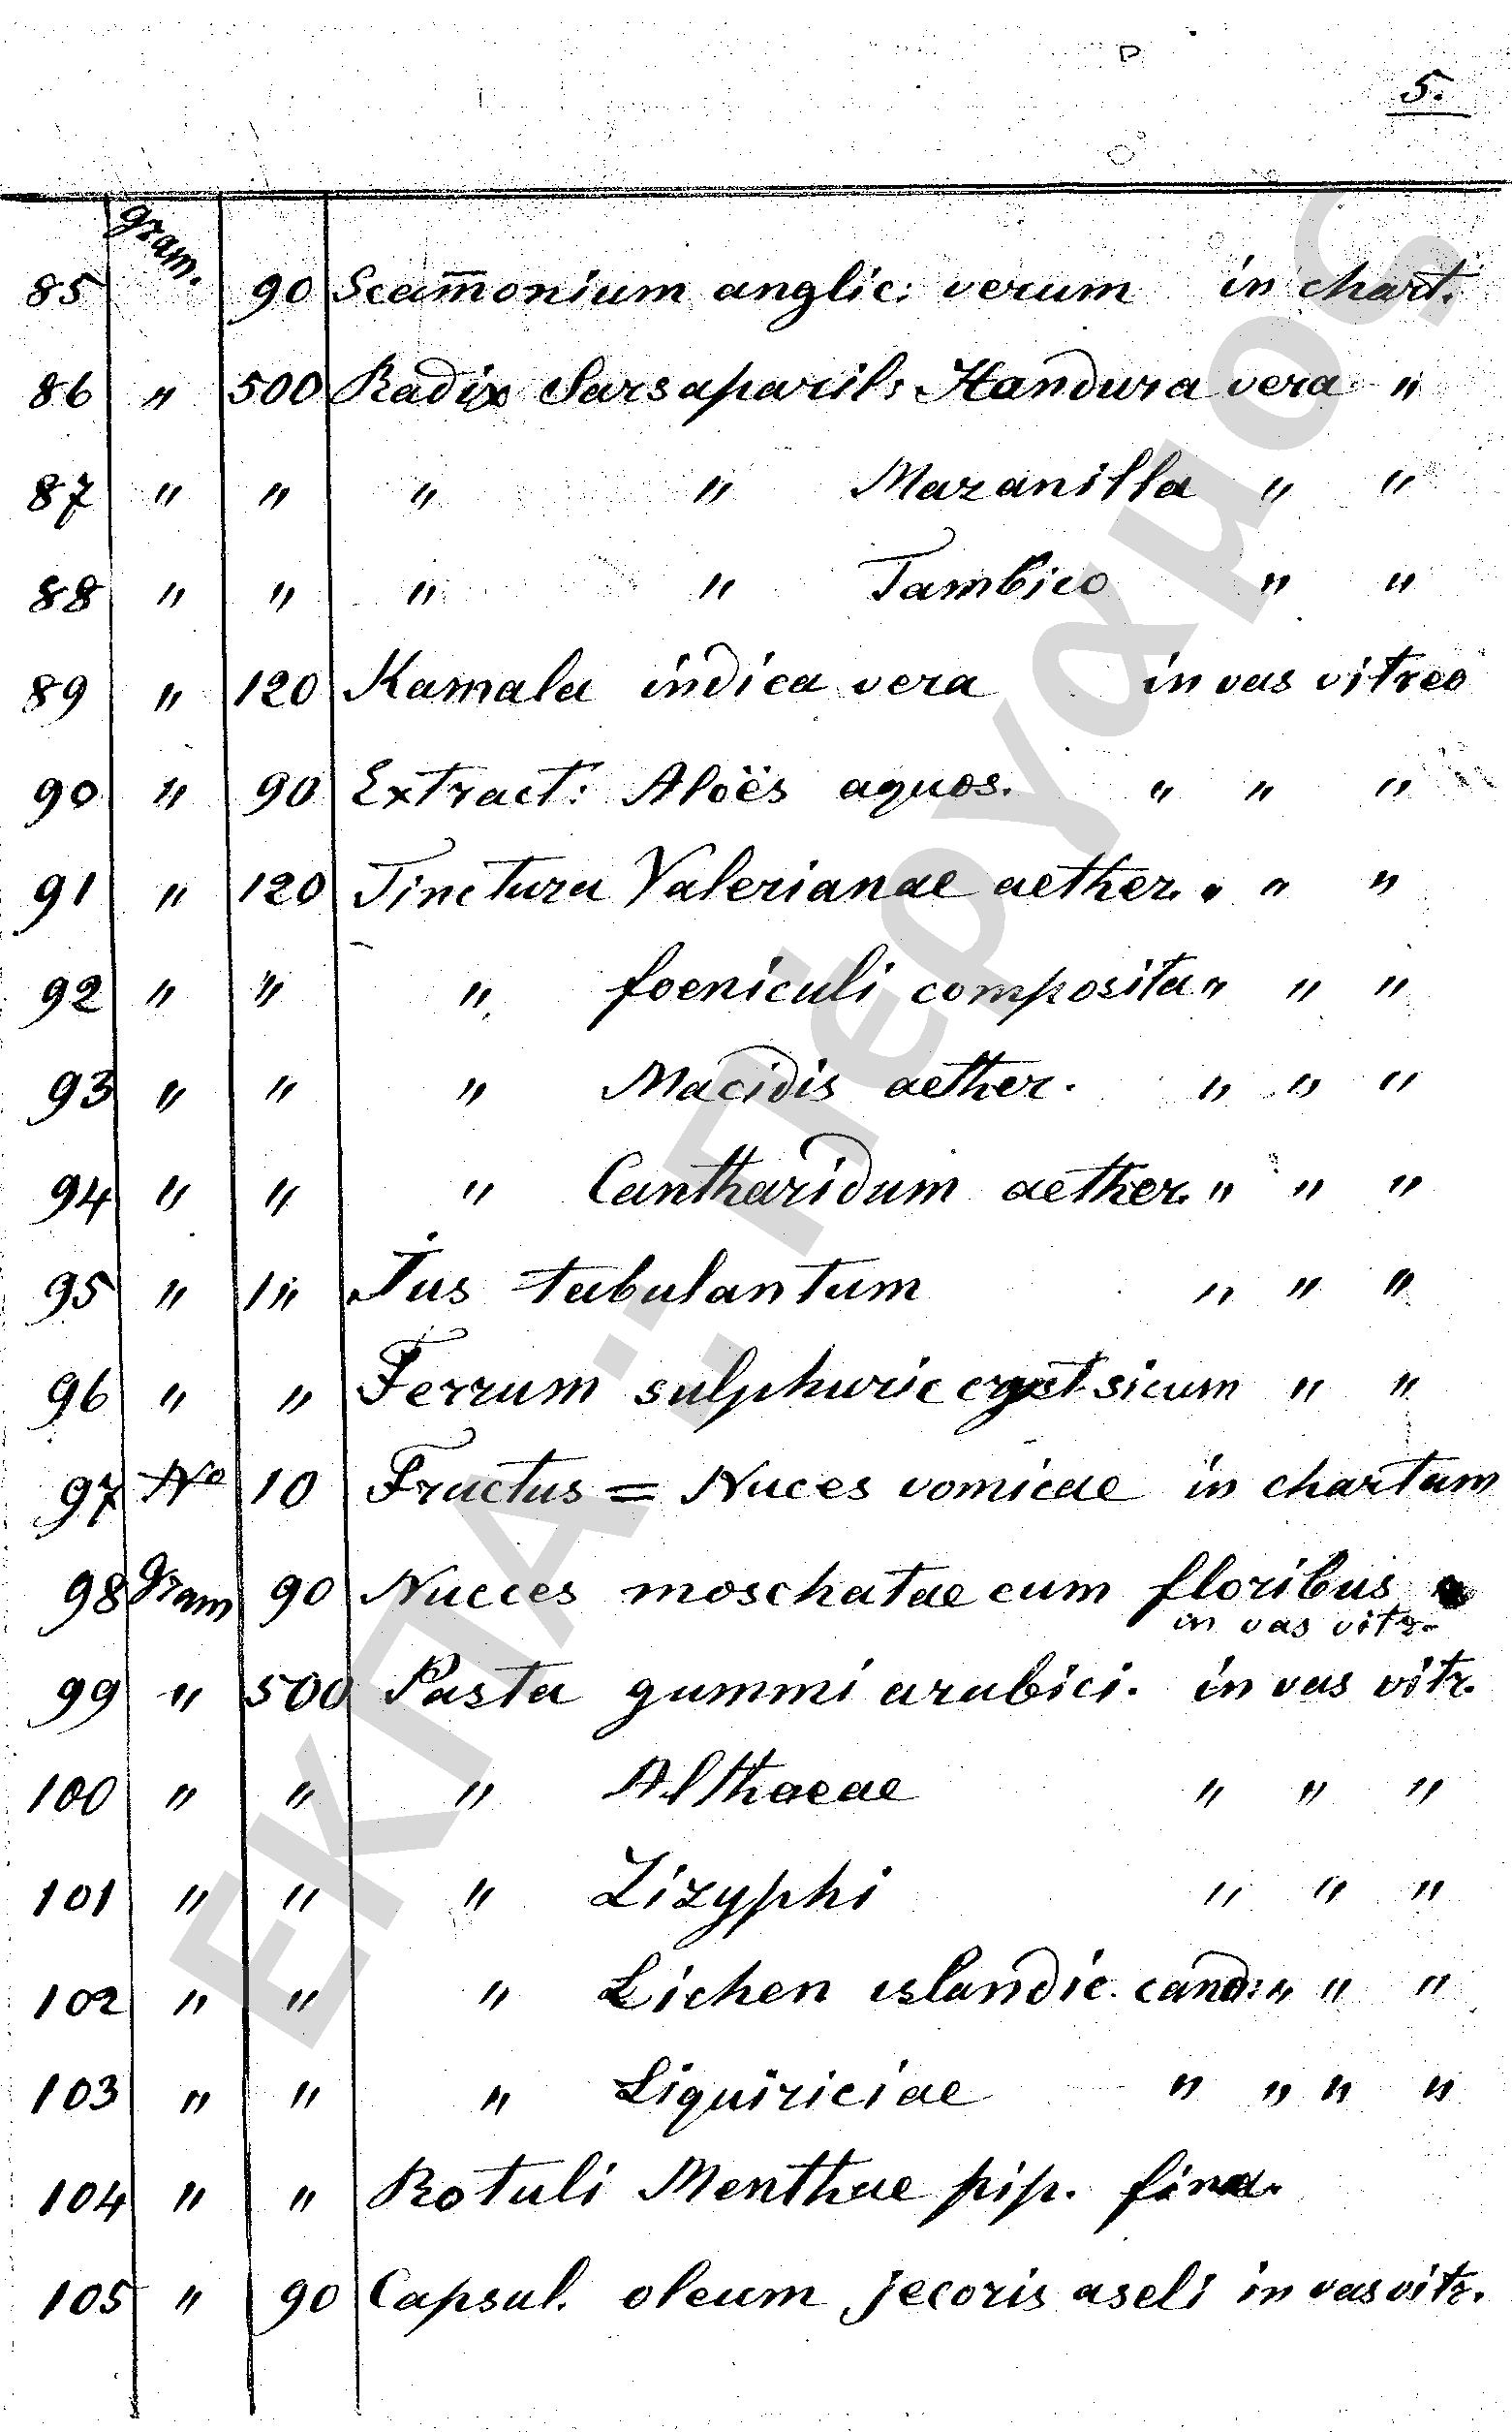 5.
gram.
85 90 Scam̅onium anglic: verum in chart.
86 " 500 Radix Sarsaparil: Handura vera "
87 " " " " Mazanilla " "
88 " " " " Tambico " "
89 " 120 Kamala indica vera in vas vitreo
90 " 90 Extract: Aloës aquos. " " "
91 " 120 Tinctura Valerianae aether. " " "
92 " " " foeniculi composita " " "
93 " " " Macidis aether. " " "
94 " " " Cantharidum aether. " " "
95 " 1" Jus tabulantum " " "
96 " " Ferrum sulphuric cryst sicum " "
97 No 10 Fructus = Nuces vomicae in chartam
98 Gram 90 Nucces moschatae cum floribus
in vas vitr.
99 " 500 Pasta gummi arabici. in vas vitr.
100 " " " Althaeae " " "
101 " " " Zizyphi " " "
102 " " " Lichen islandic. cand: " " "
103 " " " Liquiriciae " " " "
104 " " Rotuli Menthae pip. fina.
105 " 90 Capsul. oleum jecoris aseli in vas vitr.
ΕΚΠΑ : Πέργαμος